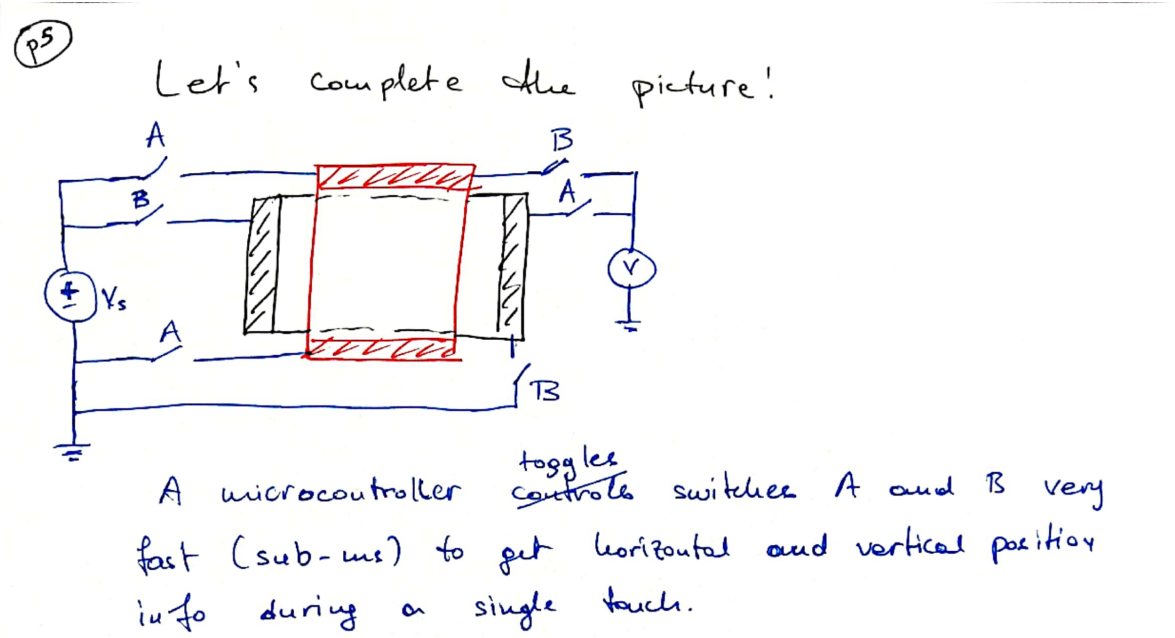 p5
Let's complete the picture!
A
B
B
A
+
Vs
V
A
B
toggles
A microcontroller controls switches A and B very
fast (sub-ms) to get horizontal and vertical position
info during a single touch.